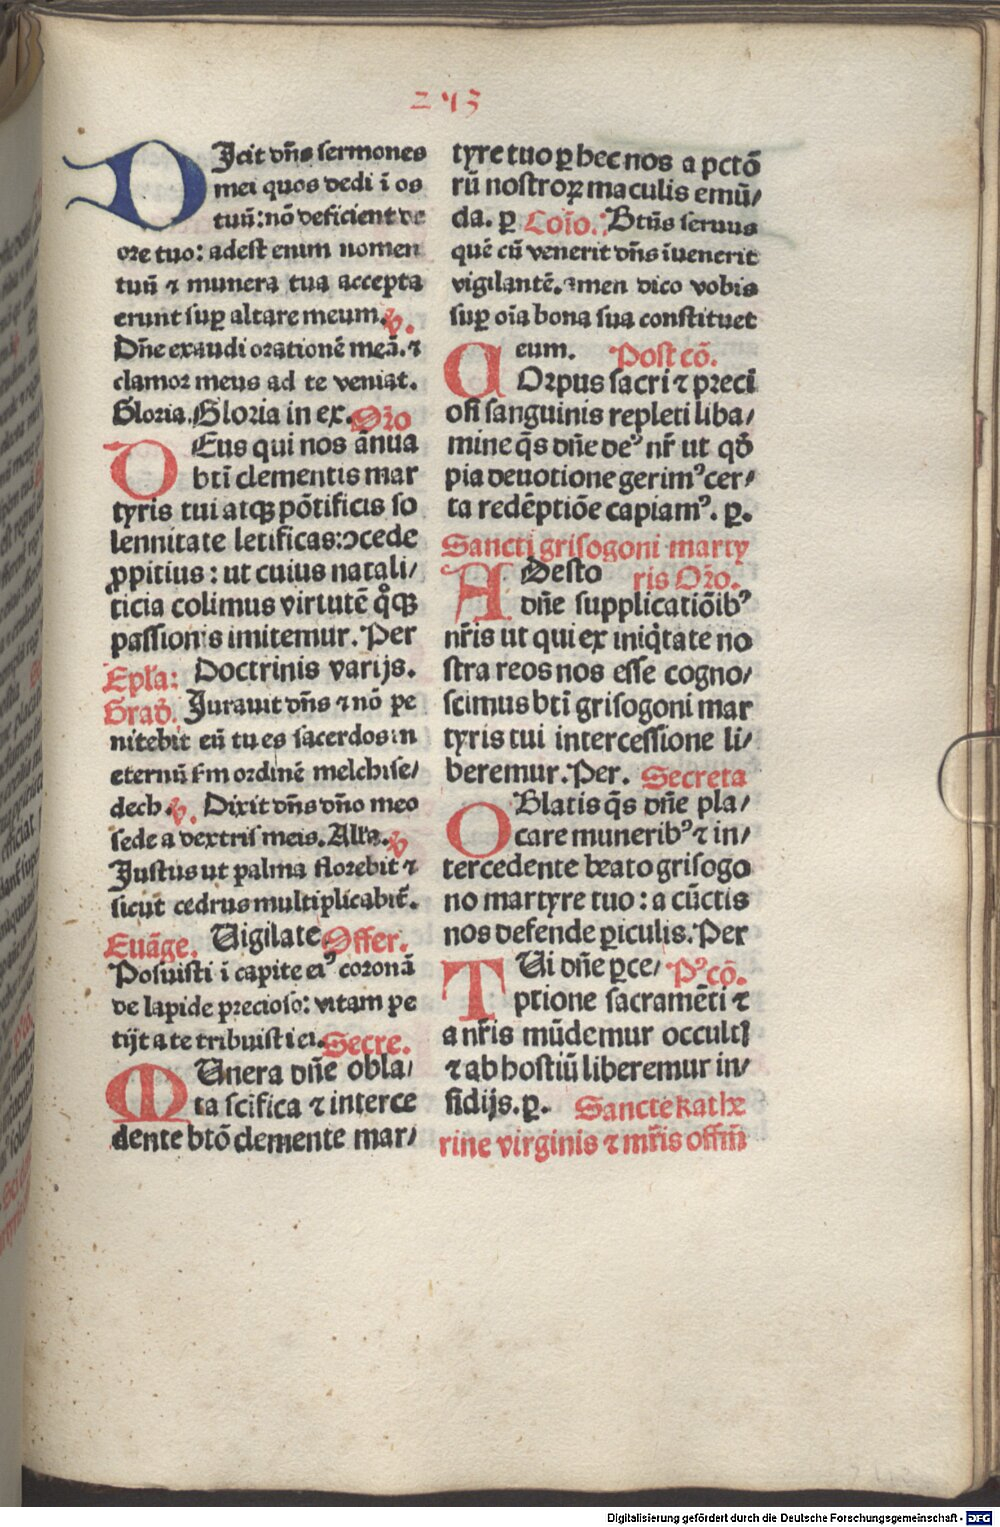 243
DIcit dñs sermones
mei quos dedi ĩ os
tuũ: nõ deficient de
ore tuo: adest enim nomen
tuũ ⁊ munera tua accepta
erunt suꝑ altare meum. ℣.
Dñe exaudi orationẽ meã. ⁊
clamor meus ad te veniat.
Gloria. Gloria in ex. Oro
DEus qui nos ãnua
bti clementis mar
tyris tui atqꝫ põtificis so
lennitate letificas: ↄcede
ꝓpitius: ut cuius natali/
ticia colimus virtutẽ qͦqꝫ
passionis imitemur. Per
Epla: Doctrinis varijs.
Grad. Jurauit dñs ⁊ nõ pe
nitebit eũ tu es sacerdos in
eternũ fm ordinẽ melchise/
dech. ℣. Dixit dñs dño meo
sede a dextris meis. Alla. ℣
Justus ut palma florebit ⁊
sicut cedrus multiplicabit̃.
Euãge. Uigilate Offer.
Posuisti ĩ capite eiꝰ coronã
de lapide precioso: vitam pe
tijt a te tribuisti ei. Secre.
MUnera dñe obla/
ta scifica ⁊ interce
dente btõ clemente mar/
tyre tuo ꝑ hec nos a pctõ
rũ nostroꝝ maculis emũ/
da. ꝑ Coĩo. Btũs seruus
quẽ cũ venerit dñs ĩuenerit
vigilantẽ. amen dico vobis
suꝑ oĩa bona sua constituet
eum. Post cõ.
COrpus sacri ⁊ preci
osi sanguinis repleti liba/
mine q̃s dñe deꝰ nr̃ ut qđ
pia deuotione gerimꝰ cer/
ta redẽptiõe capiamꝰ. ꝑ.
Sancti grisogoni marty
ris Oro.
ADesto
dñe supplicatiõibꝰ
nr̃is ut qui ex iniq̃tate no
stra reos nos esse cogno/
scimus bti grisogoni mar
tyris tui intercessione li/
beremur. Per. Secreta
OBlatis q̃s dñe pla/
care muneribꝰ ⁊ in/
tercedente beato grisogo
no martyre tuo: a cũctis
nos defende ꝑiculis. Per
TUi dñe ꝑce/ Pꝰcõ.
ptione sacramẽti ⁊
a nr̃is mũdemur occultl
⁊ ab hostiũ liberemur in/
sidijs. ꝑ. Sancte kathe
rine virginis ⁊ mr̃is offm̃
Digitalisierung gefördert durch die Deutsche Forschungsgemeinschaft - DFG